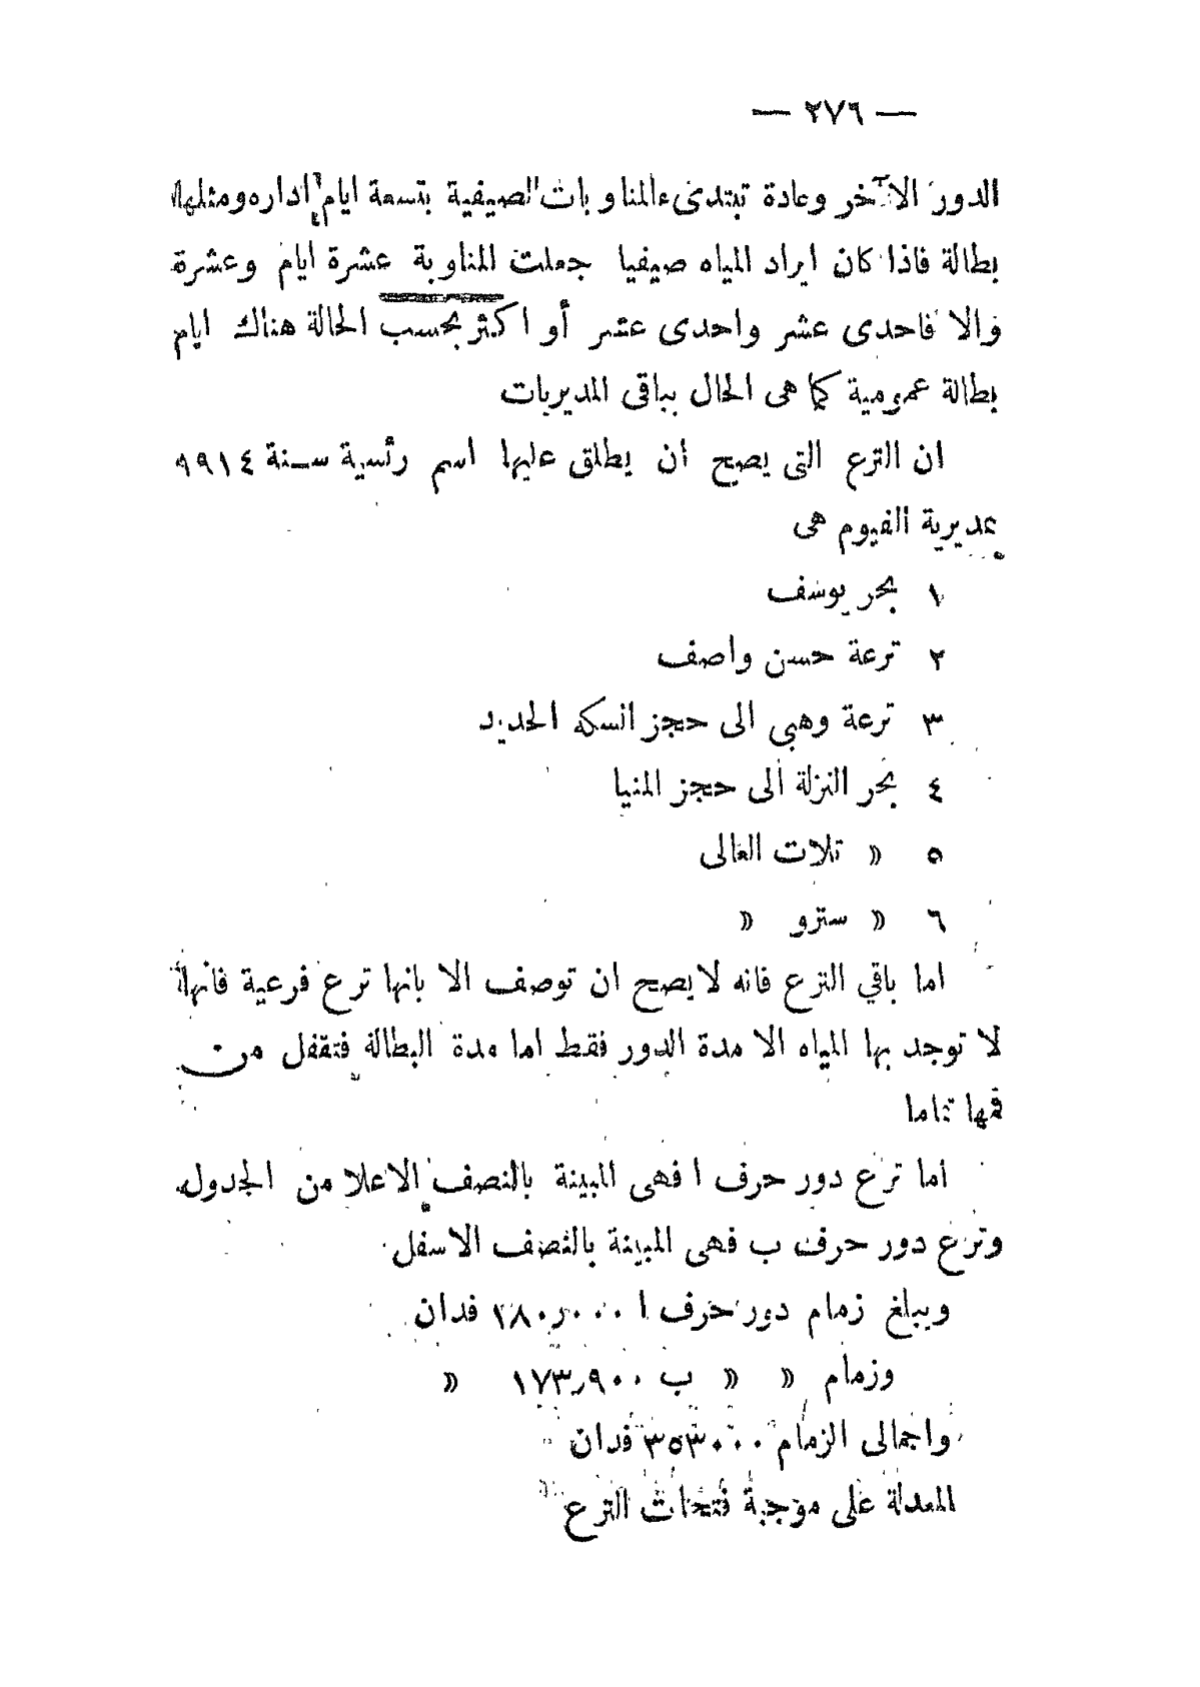 — ٢٧٦ —
الدور الآخر وعادة تبتدىء المناوبات الصيفية بتسعة ايام اداره ومثلها
بطالة فاذا كان ايراد المياه صيفيا جعلت المناوبة عشرة ايام وعشرة
والا فاحدى عشر واحدى عشر أو اكثر بحسب الحالة هناك ايام
بطالة عمومية كما هى الحال بباقى المديريات
ان الترع التى يصح ان يطلق عليها اسم رئسية سنة ١٩١٤
بمديرية الفيوم هى
١ بحر يوسف
٢ ترعة حسن واصف
٣ ترعة وهبي الى حجز السكه الحديد
٤ بحر النزلة الى حجز المنيا
٥ » تلات العالى
٦ » سنرو »
اما باقي الترع فانه لا يصح ان توصف الا بانها ترع فرعية فانها
لا توجد بها المياه الا مدة الدور فقط اما مدة البطالة فتقفل من
فمها تماما
اما ترع دور حرف ا فهى المبينة بالنصف الاعلا من الجدول
وترع دور حرف ب فهى المبينة بالنصف الاسفل
ويبلغ زمام دور حرف ا ١٨٠ر٠٠٠ فدان
وزمام » » ب ١٧٣ر٩٠٠ »
واجمالى الزمام ٣٥٣٠٠٠ فدان
المعدلة على موجبة فتحات الترع